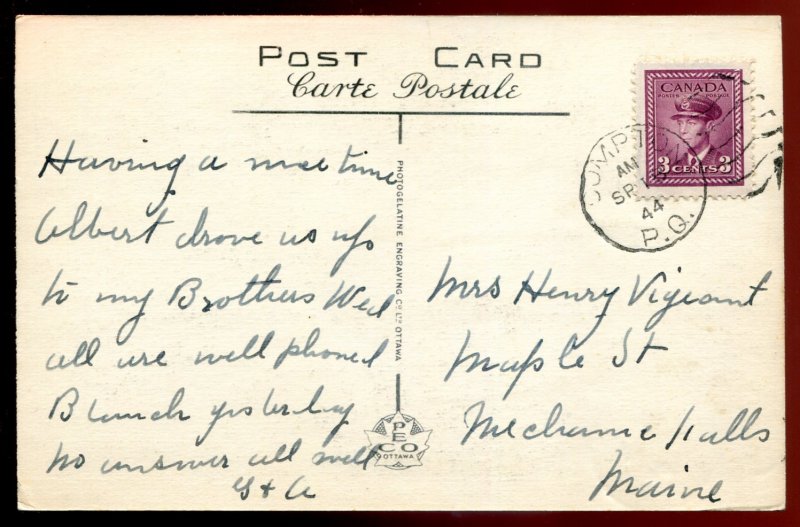 POST CARD
Carte Postale
CANADA
POSTES POSTAGE
3 CENTS 3
COMPTON
AM
SP
44
P.Q.
Having a nice time
Albert drove us up
to my Brothers Wed
all are well phoned
Blanch yesterday
no answer all well
G + A
PHOTOGELATINE ENGRAVING CO LTD OTTAWA
PECO
OTTAWA
Mrs Henry Vigeant
Maple St
Mechanic Falls
Maine